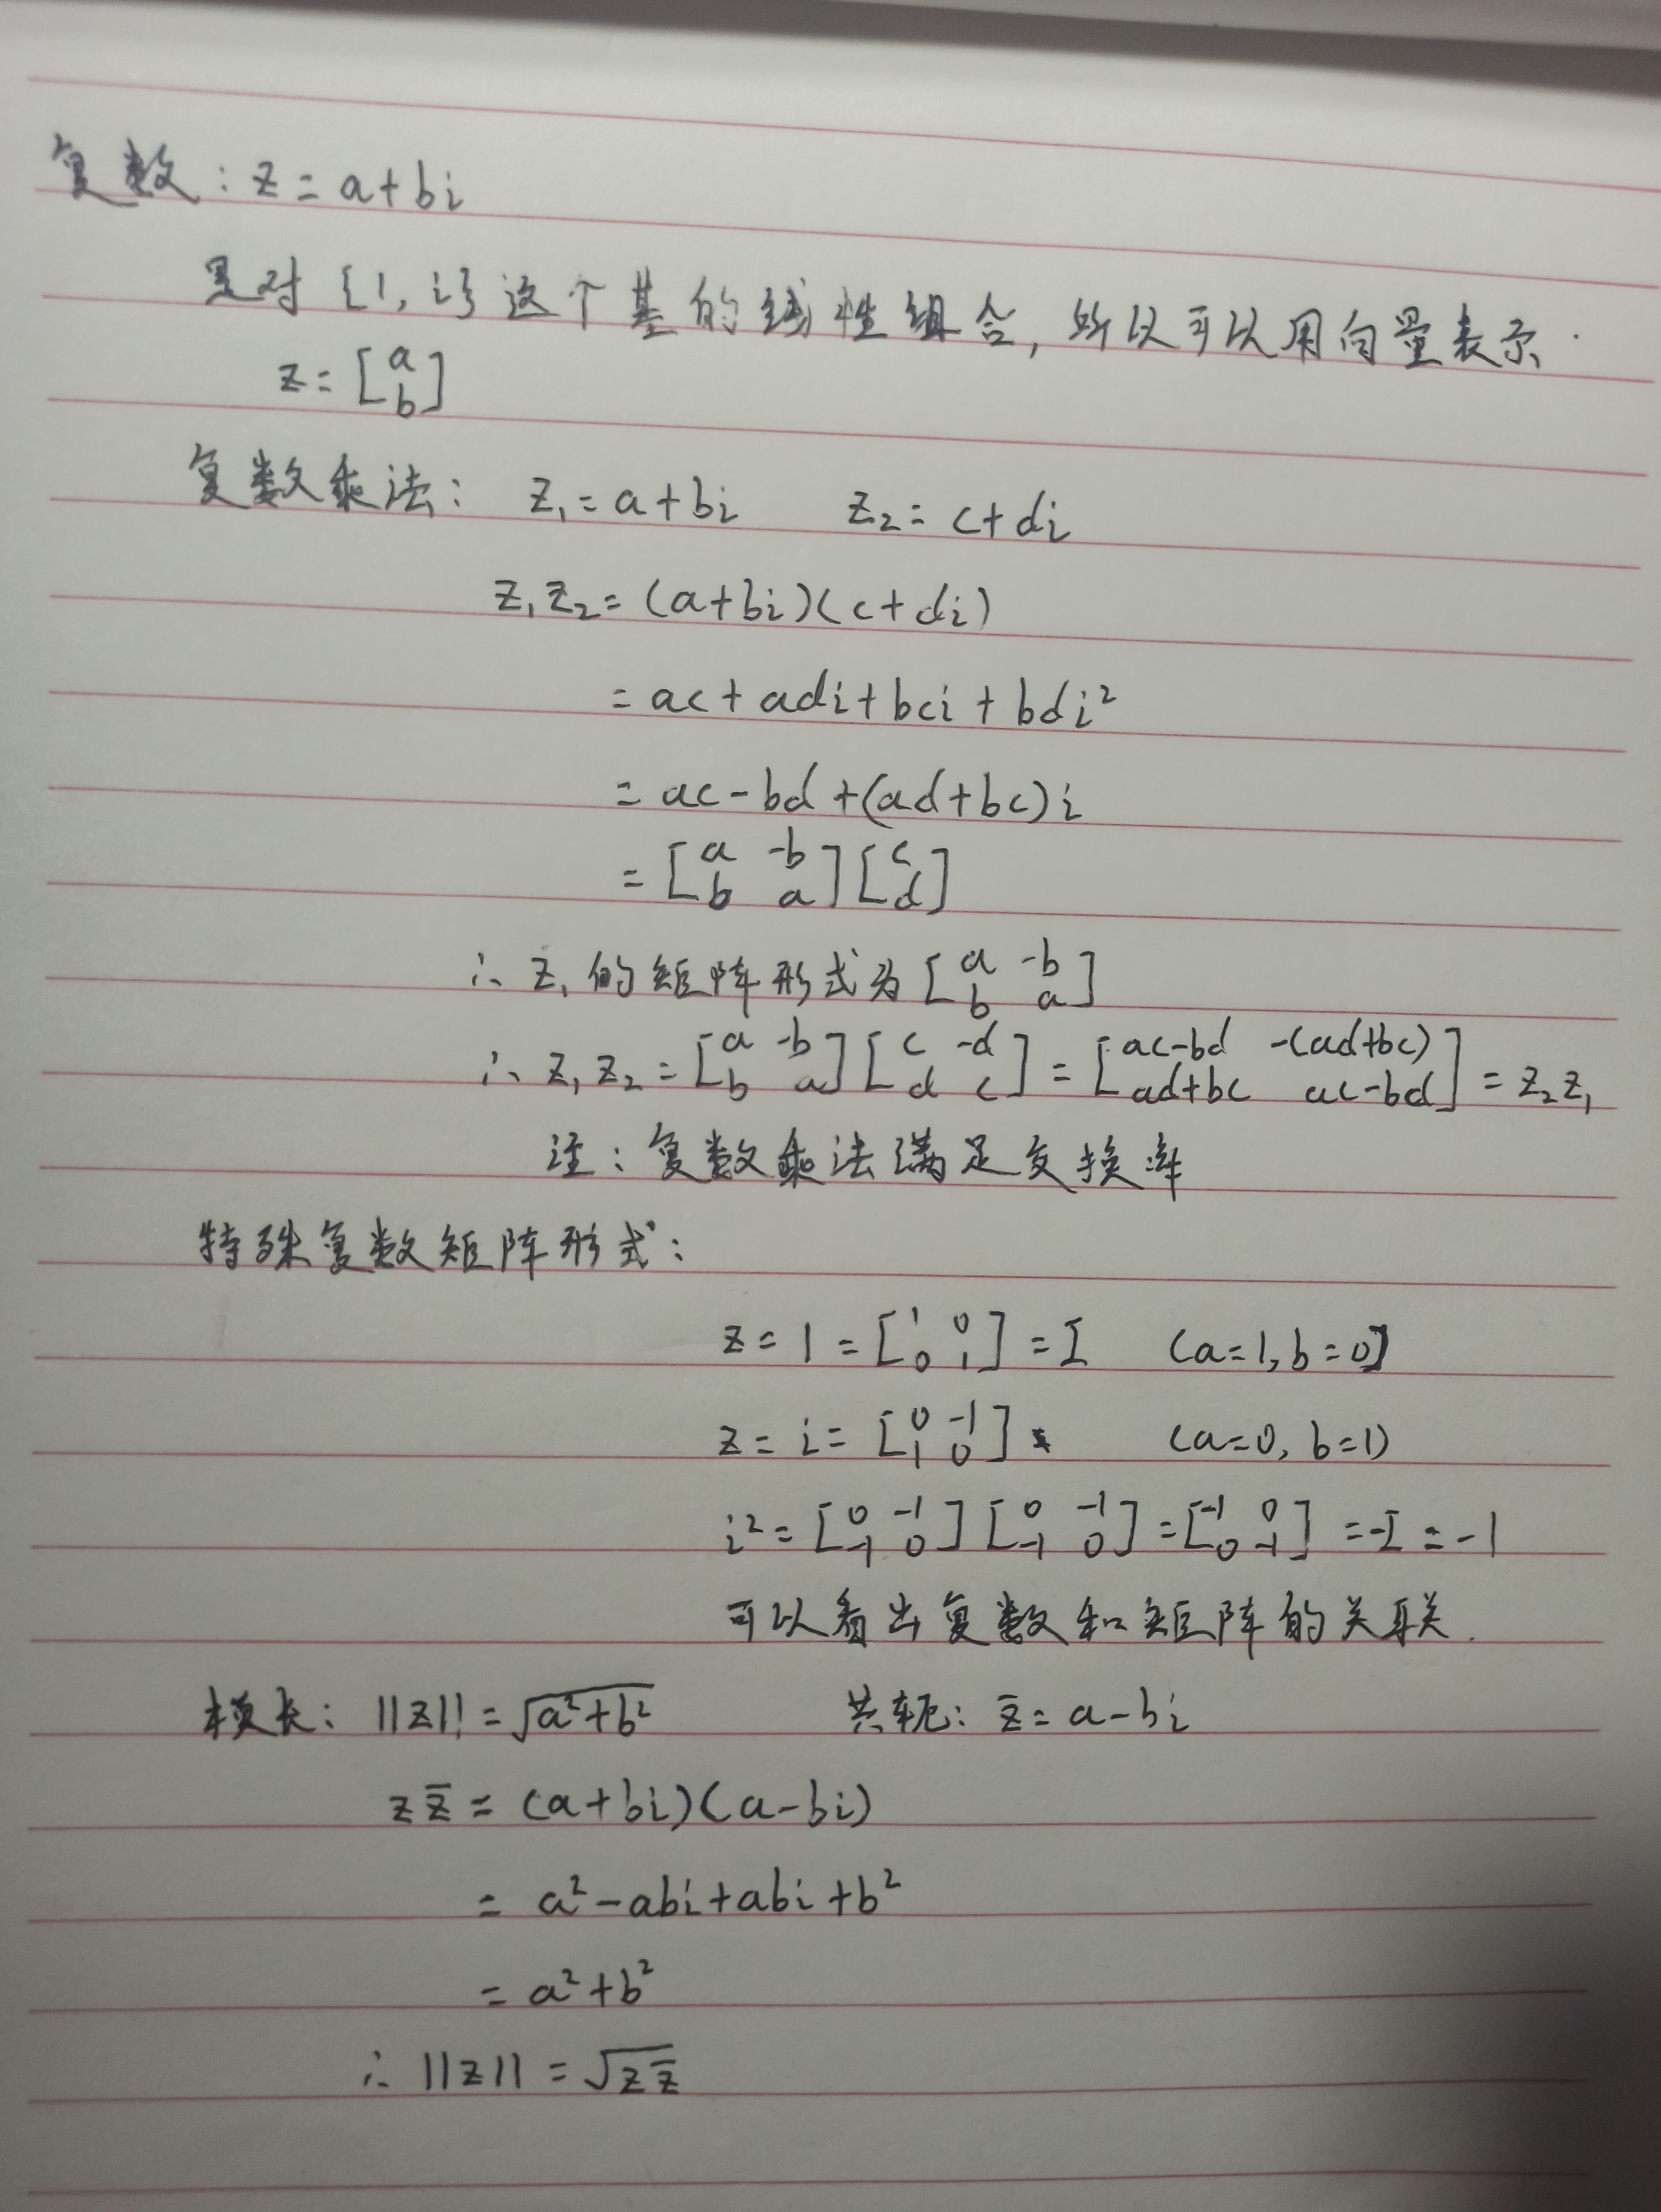 复数：z = a+bi
是对 {1, i} 这个基的线性组合，所以可以用向量表示.
z = [a; b]
复数乘法： z₁ = a+bi z₂ = c+di
z₁z₂ = (a+bi)(c+di)
= ac + adi + bci + bdi²
= ac-bd+(ad+bc)i
= [a -b; b a][c; d]
∴ z₁的矩阵形式为 [a -b; b a]
∴ z₁z₂ = [a -b; b a][c -d; d c] = [ac-bd -(ad+bc); ad+bc ac-bd] = z₂z₁
注：复数乘法满足交换率
特殊复数矩阵形式：
z = 1 = [1 0; 0 1] = I (a=1, b=0)
z = i = [0 -1; 1 0] (a=0, b=1)
i² = [0 -1; -1 0][0 -1; -1 0] = [-1 0; 0 -1] = -I = -1
可以看出复数和矩阵的关联.
模长：||z|| = √(a²+b²) 共轭：z̄ = a-bi
zz̄ = (a+bi)(a-bi)
= a²-abi+abi+b²
= a²+b²
∴ ||z|| = √(zz̄)